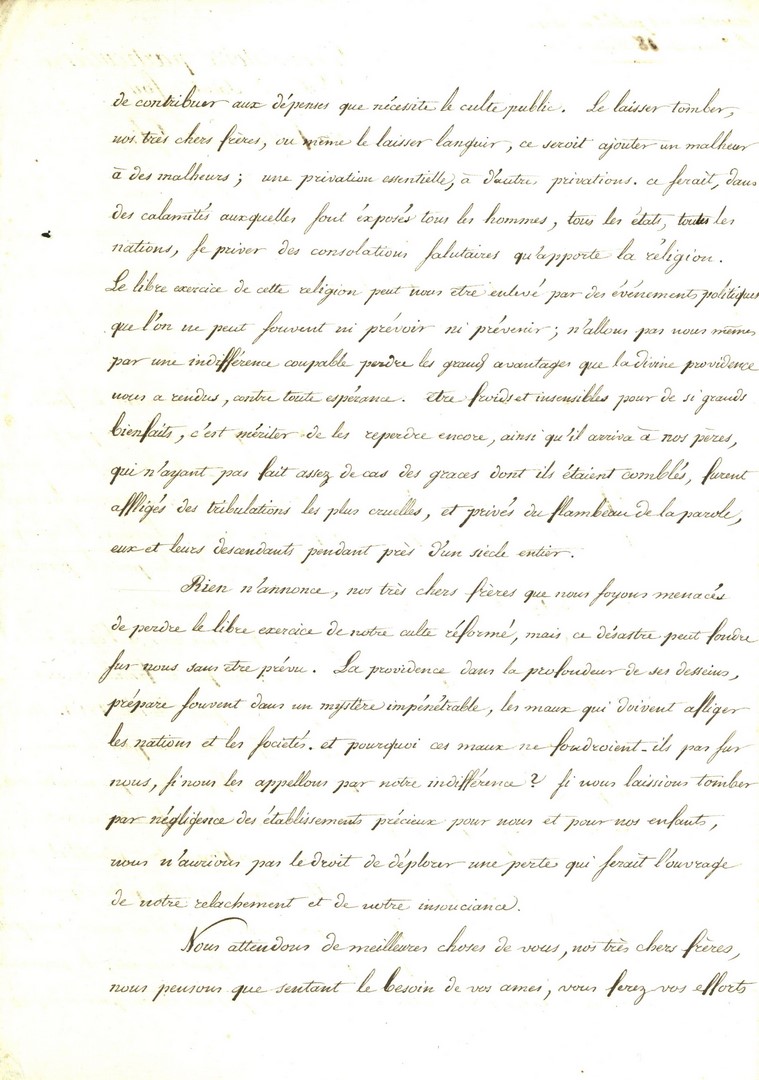 de contribuer aux dépenses que nécessite le culte public. Le laisser tomber,
nos très chers frères, ou même le laisser languir, ce seroit ajouter un malheur
à des malheurs; une privation essentielle, à d'autres privations. ce serait, dans
des calamités auxquelles sont éxposés tous les hommes, tous les états, toutes les
nations, se priver des consolations salutaires qu'apporte la réligion.
Le libre exercice de cette religion peut nous etre enlevé par des événements politiques
que l'on ne peut souvent ni prévoir ni prévenir; n'allons pas nous mêmes
par une indifférence coupable perdre les grands avantages que la divine providence
nous a rendus, contre toute espérance. etre froids et insensibles pour de si grands
bienfaits, c'est mériter de les reperdre encore, ainsi qu'il arriva à nos pères,
qui n'ayant pas fait assez de cas des graces dont ils étaient comblés, furent
affligés des tribulations les plus cruelles, et privés du flambeau de la parole,
eux et leurs descendants pendant près d'un siècle entier.
Rien n'annonce, nos très chers frères que nous soyons menacés
de perdre le libre exercice de notre culte réformé, mais ce désastre peut fondre
sur nous sans etre prévu. La providence dans la profondeur de ses desseins,
prépare souvent dans un mystère impénétrable, les maux qui doivent affliger
les nations et les sociétés. et pourquoi ces maux ne foudroient-ils pas sur
nous, si nous les appellons par notre indifférence? si nous laissions tomber
par négligence des établissements précieux pour nous et pour nos enfants,
nous n'aurions pas le droit de déplorer une perte qui serait l'ouvrage
de notre relachement et de notre insouciance.
Nous attendons de meilleures choses de vous, nos très chers frères,
nous pensons que sentant le besoin de vos ames, vous ferez vos efforts